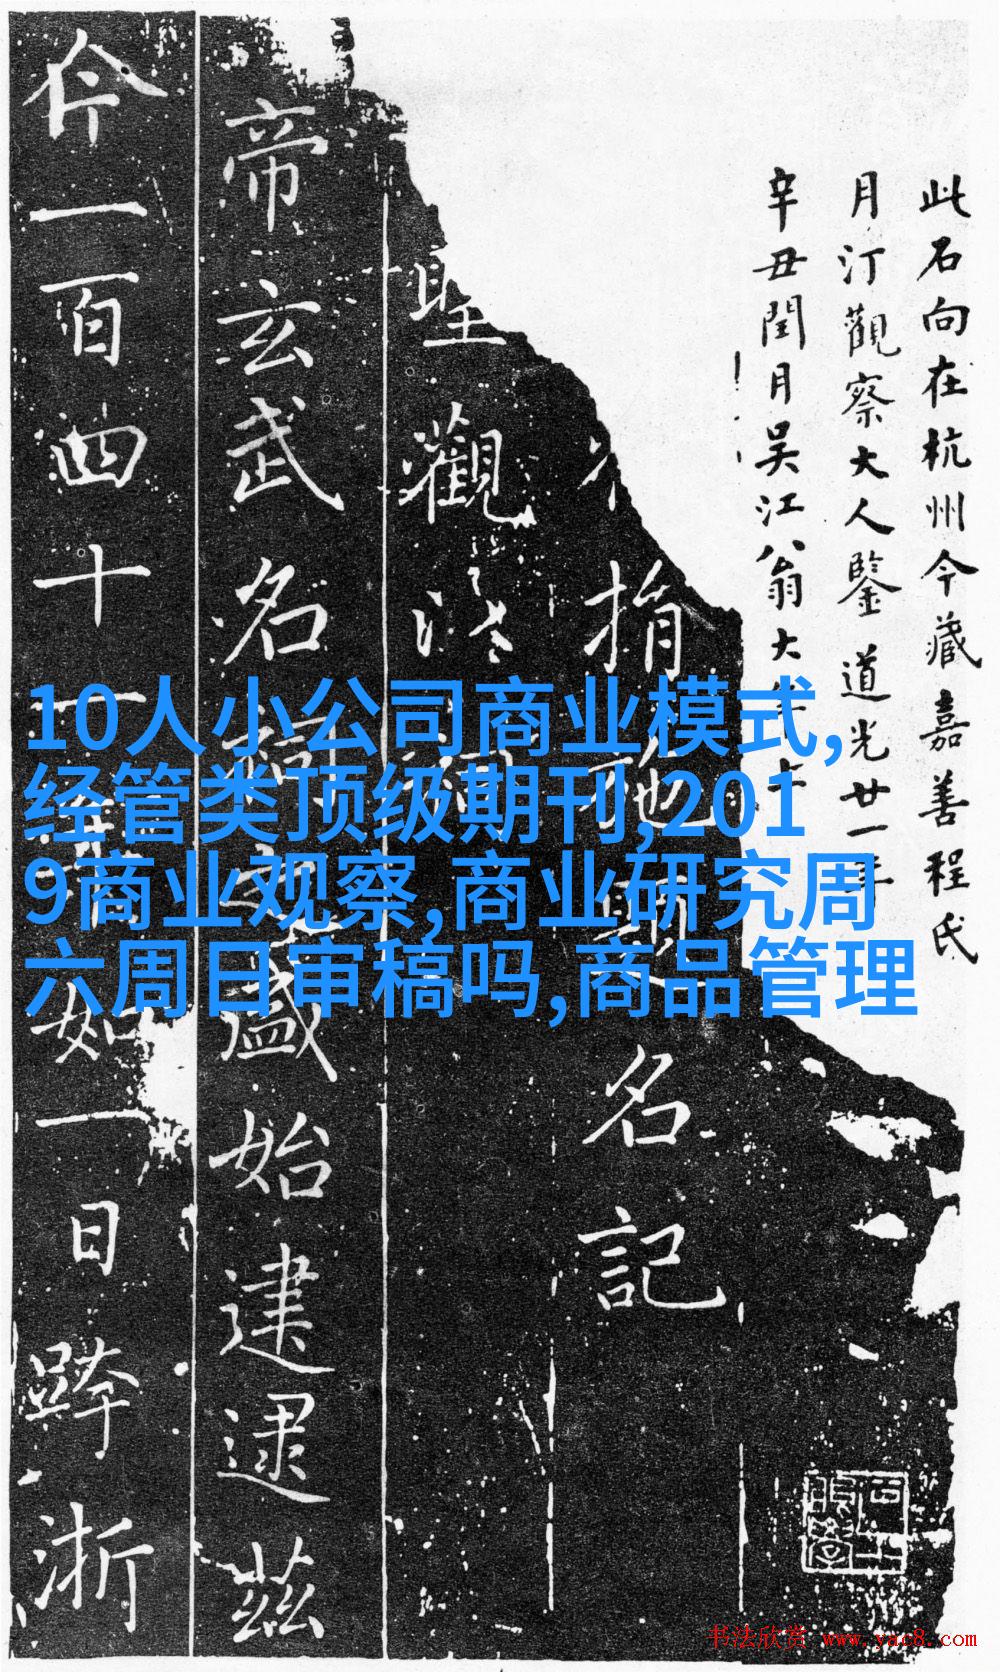 此石向在杭州今藏嘉善程氏
月汀觀察大人鑒道光廿一年
辛丑閏月吳江翁大
指地名記
聖觀
帝玄武名盛始建逮茲
今一百四十一如一日跨浙
10人小公司商业模式,
经管类顶级期刊,201
9商业观察,商业研究周
六周日审稿吗,商品管理
书法欣赏 www.yac8.com